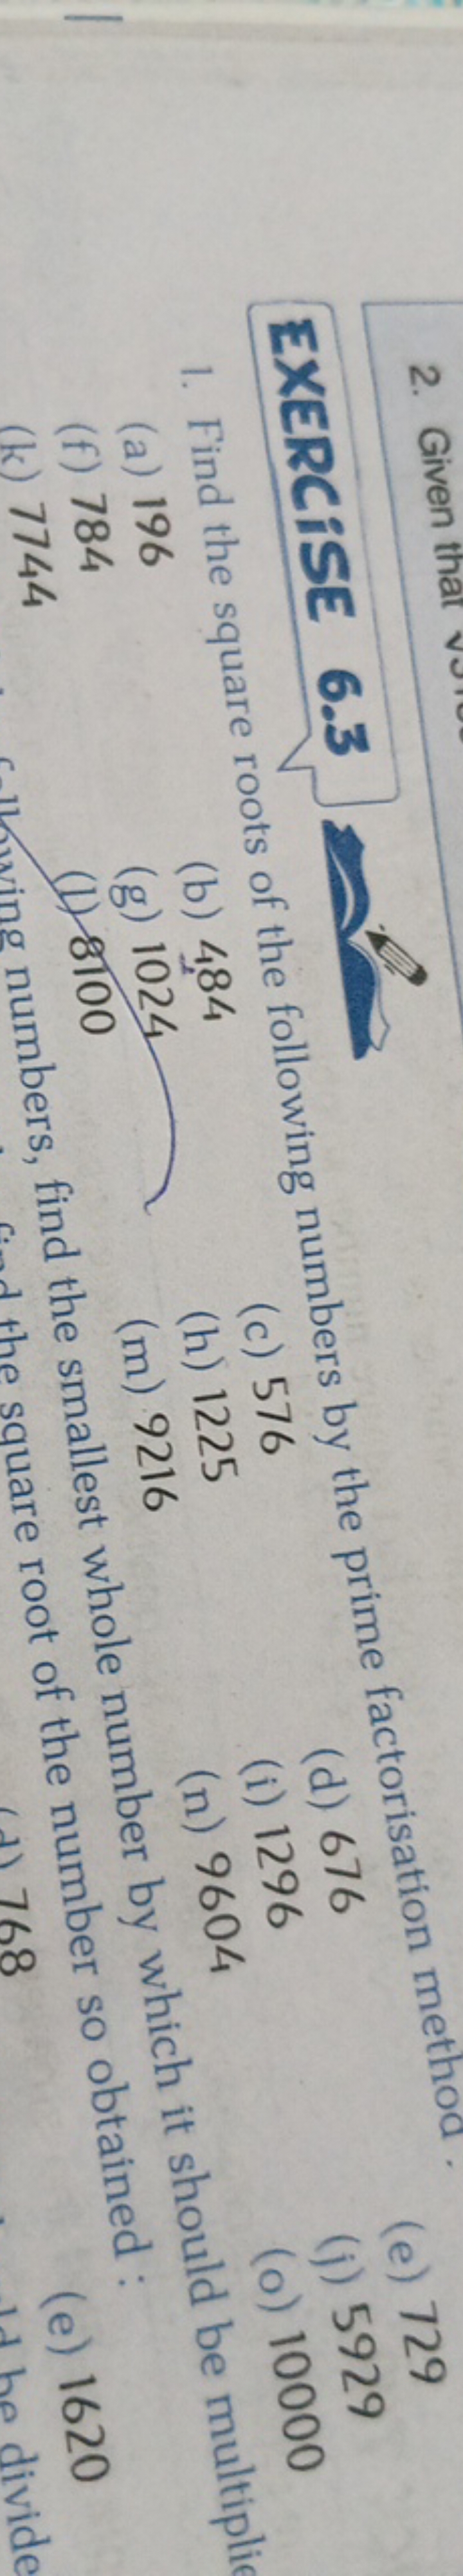 2. Given that
EXERCiSE 6.3
1. Find the square roots of the following numbers by the prime factorisation method.
(a) 196 (b) 484 (c) 576 (d) 676 (e) 729
(f) 784 (g) 1024 (h) 1225 (i) 1296 (j) 5929
(k) 7744 (l) 8100 (m) 9216 (n) 9604 (o) 10000
numbers, find the smallest whole number by which it should be
the square root of the number so obtained :
768 (e) 1620
be